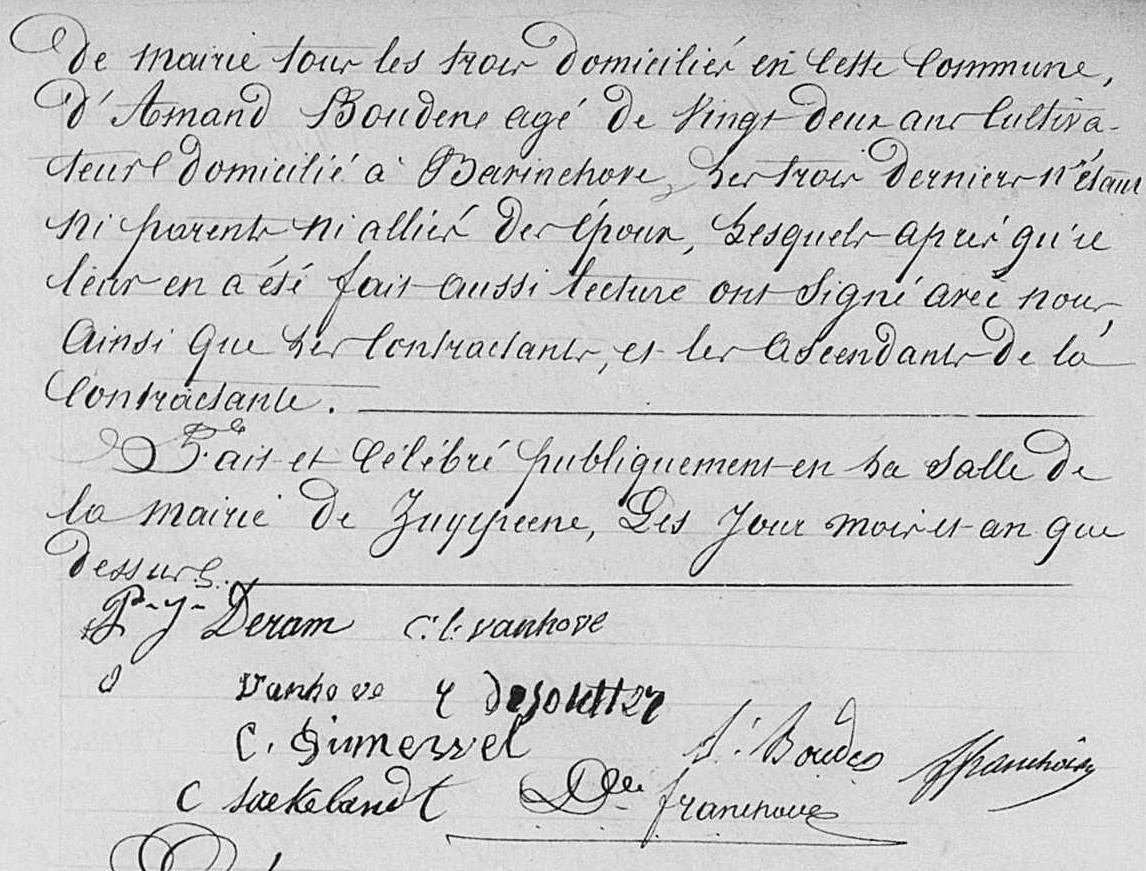 de mairie tous les trois domiciliés en cette Commune,
d'Amand Boudens agé de vingt deux ans Cultiva-
teur domicilié à Bavinchove, Les trois derniers n'étant
ni parents ni alliés des époux, Lesquels après qu'il
leur en a été fait aussi lecture ont signé avec nous,
Ainsi que Les Contractants, et les Ascendants de la
Contractante.
Fait et Célébré publiquement en La Salle de
la mairie de Zuytpeene, Les Jour mois et an que
dessus.
P-J- Deram C. L. vanhove
Vanhove
C.
C Saekebandt A. Boudens
D franchois